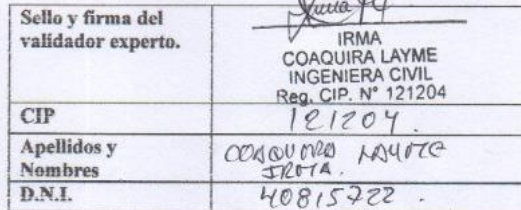 Sello y firma del
validador experto.
IRMA
COAQUIRA LAYME
INGENIERA CIVIL
Reg. CIP. N° 121204
CIP
121204.
Apellidos y
Nombres
COAQUIRA LAYME
IRMA.
D.N.I.
40815722.